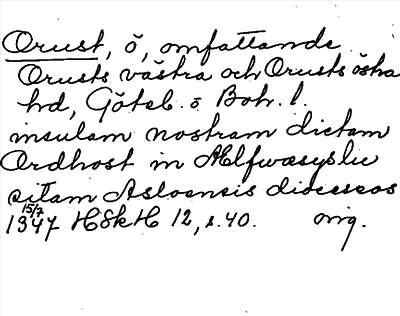 Orust, ö, omfattande
Orusts västra och Orusts östra
hd, Göteb. o Boh. l.
insulam nostram dictam
Ordhost in Ælfwæsyslu
sitam Asloensis dioceseos
15/7 1347 HSkH 12, s. 40. orig.